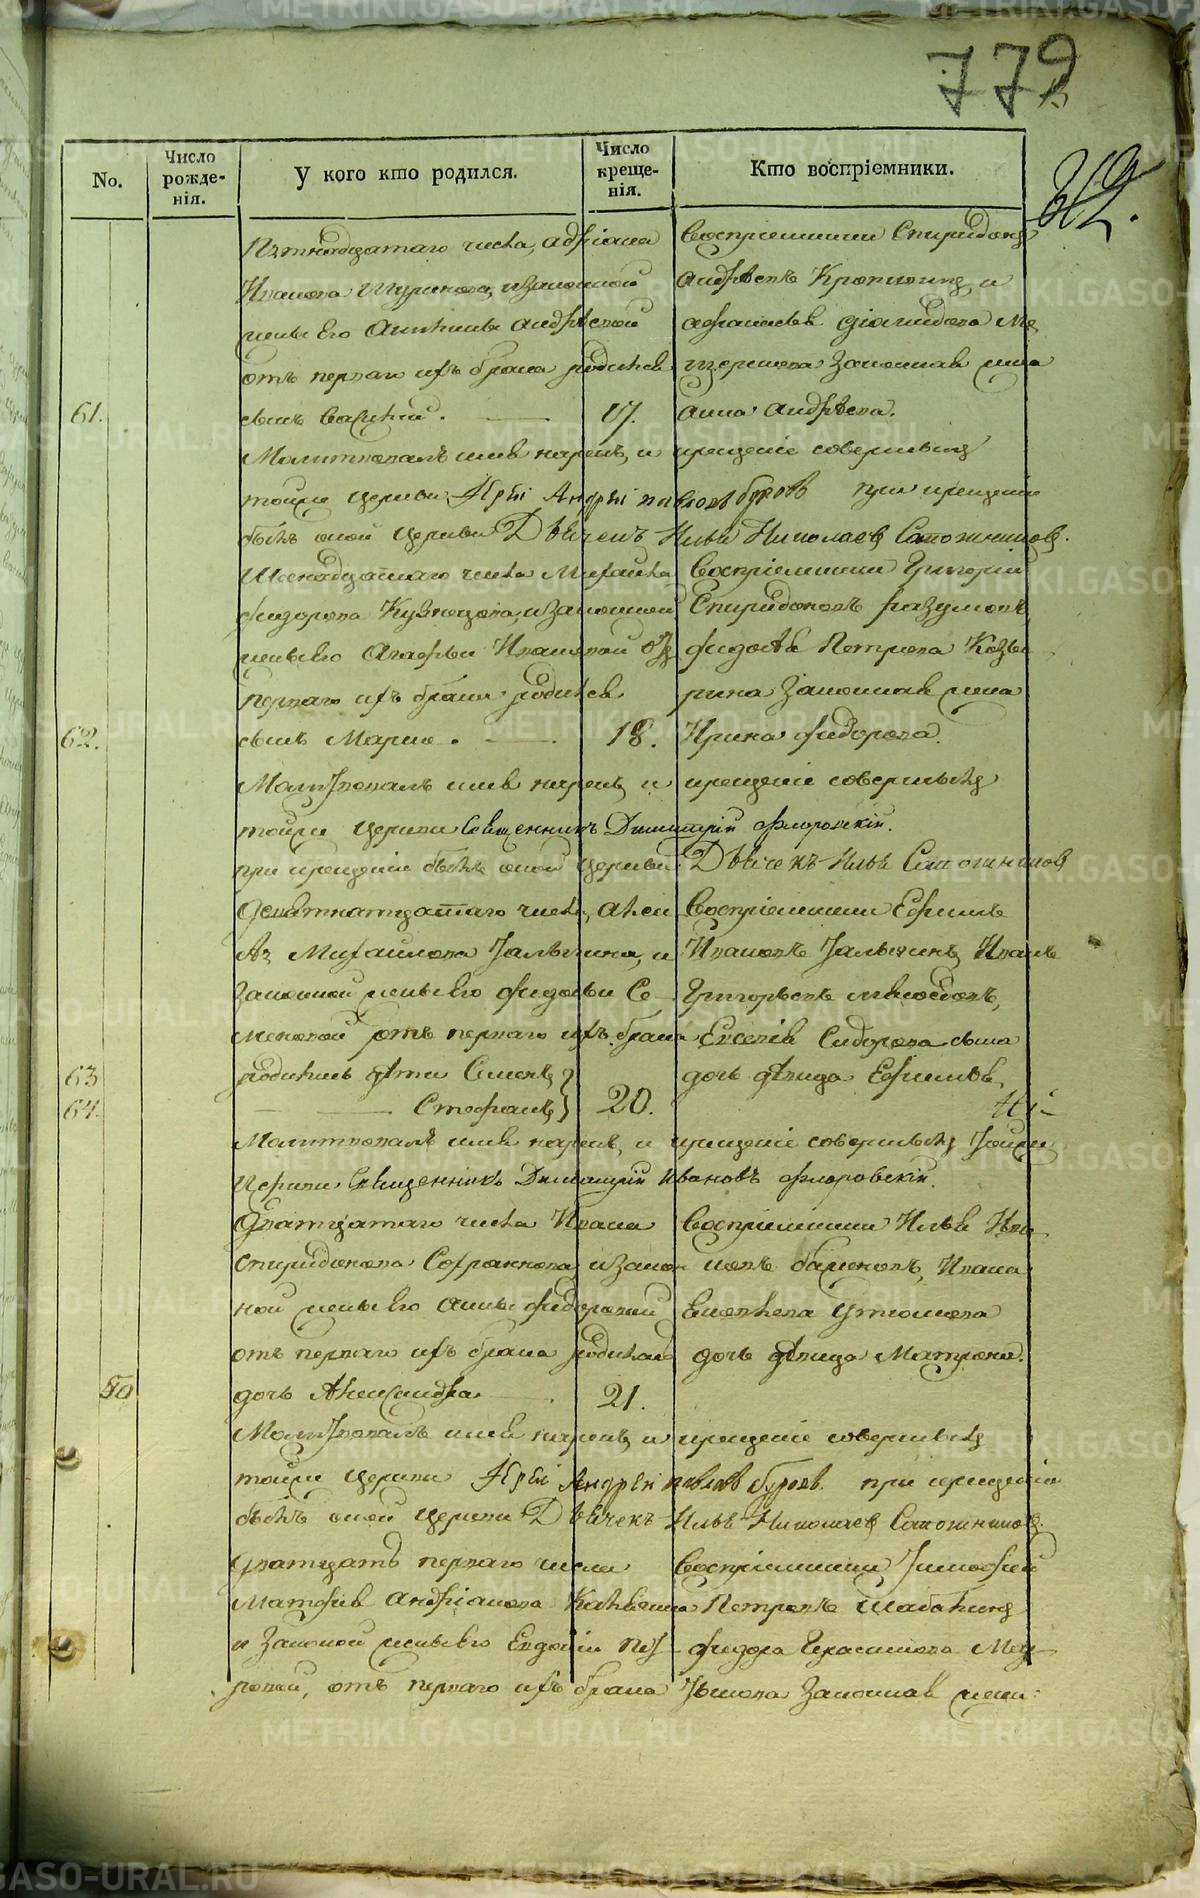 779
No.
Число рожде-нія.
У кого кто родился.
Число креще-нія.
Кто воспріемники.
312.
Пятнадцатаго числа, Адріана
Иванова Шуринова, изаконной
жены Его Анны Андрѣевой
отъ перваго ихъ брака родился
61. сынъ Василій. 17.
Воспріемники Спиридонъ
Андрѣевъ и
Законная жена
Анна Андрѣева.
Молитвовалъ имя нарекъ, и крещеніе совершилъ
тойже церкви Іерей Андрей Павловъ Буровъ при крещеніи
былъ оной церкви Дьячекъ Илья Николаевъ Сапожниковъ.
Шеснадцатаго числа Михаила
Федорова Кузнецова, изаконной
жены его Агафьи Ивановой отъ
перваго ихъ брака родился
62. сынъ Марко. 18.
Воспріемники Григорій
Спиридоновъ Разумовъ,
Федосѣя Петрова Козы
рина Законная жена
Ирина Федорова.
Молитвовалъ имя нарекъ, и крещеніе совершилъ
тойже церкви Священникъ Димитрій Флоровскій.
при крещеніи былъ оной церкви Дьячекъ Илья Сапожников
Девятнатцатаго числа, Алек
Михайлова Галыгина, и
Законной жены Его Федосьи Се-
меновой отъ перваго ихъ брака
63 родились дѣти Симонъ
64. Стефанъ 20.
Воспріемники Ефимъ
Ивановъ Галыгинъ, Иванъ
Григорьевъ
Евсевія Сидорова сына
дочь дѣвица Ефимья,
Молитвовалъ имя нарекъ, и крещеніе совершилъ Тойже
Церкви Священникъ Димитрій Ивановъ Флоровскій.
Дватцатаго числа Ивана
Спиридонова Софронова изакон
ной жены Его Анны Федоровой
отъ перваго ихъ брака родилась
50 дочь Александра 21.
Воспріемники Илья Ива
новъ Баженовъ, Ивана
Утюмова
дочь дѣвица Матрона.
Молитвовалъ имя нарекъ, и крещеніе совершилъ
тойже церкви Іерей Андрей Павловъ Буровъ. при крещеніи
былъ оной церкви Дьячекъ Илья Николаевъ Сапожников.
Дватцать перваго числа
Матфея Андріанова
и Законной жены Его Евдокіи Пет
ровой, отъ перваго ихъ брака
Воспріемники Тимофей
Петровъ Шабалинъ
Федора Герасимова
Законная жена